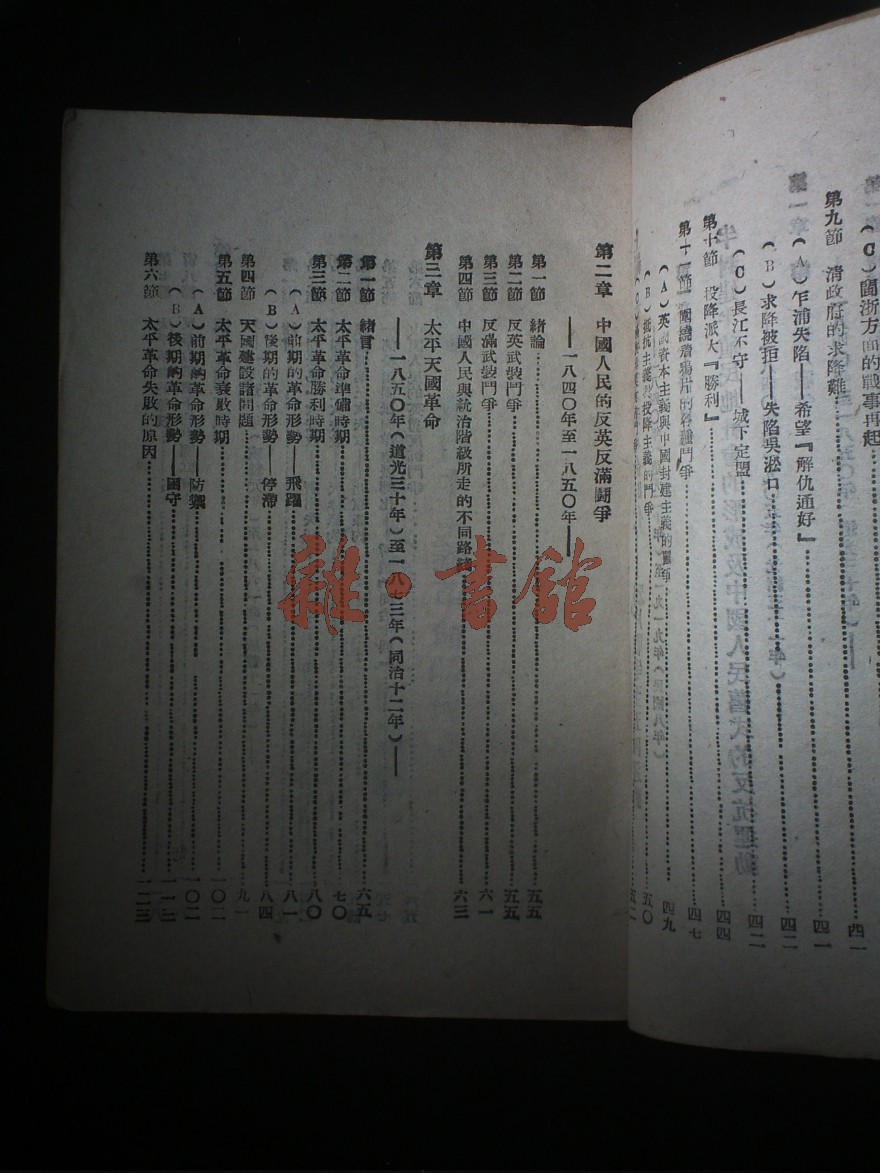 （C）閩浙方面的戰事再起……四一
第九節　清政府的求降難……四一
（A）乍浦失陷——希望『解仇通好』……四二
（B）求降被拒——失陷吳淞口……四二
（C）長江不守　城下定盟……四四
第十節　投降派大『勝利』……四七
第十一節　圍繞着鴉片的各種鬥爭……四九
（A）英國資本主義與中國封建主義的鬥爭
（B）抵抗主義與投降主義的鬥爭……五〇
第二章　中國人民的反英反滿鬭爭
——一八四〇年至一八五〇年——
第一節　緒論……五五
第二節　反英武裝鬥爭……五五
第三節　反滿武裝鬥爭……六一
第四節　中國人民與統治階級所走的不同路線……六三
第三章　太平天國革命
——一八五〇年（道光三十年）至一八七三年（同治十二年）——
第一節　緒言……六五
第二節　太平革命準備時期……七〇
第三節　太平革命勝利時期……八〇
（A）前期的革命形勢——飛躍……八一
（B）後期的革命形勢——停滯……八四
第四節　天國建設諸問題……九一
第五節　太平革命衰敗時期……一〇一
（A）前期的革命形勢——防禦……一〇二
（B）後期的革命形勢——固守……一一二
第六節　太平革命失敗的原因……一二三
雜·書館